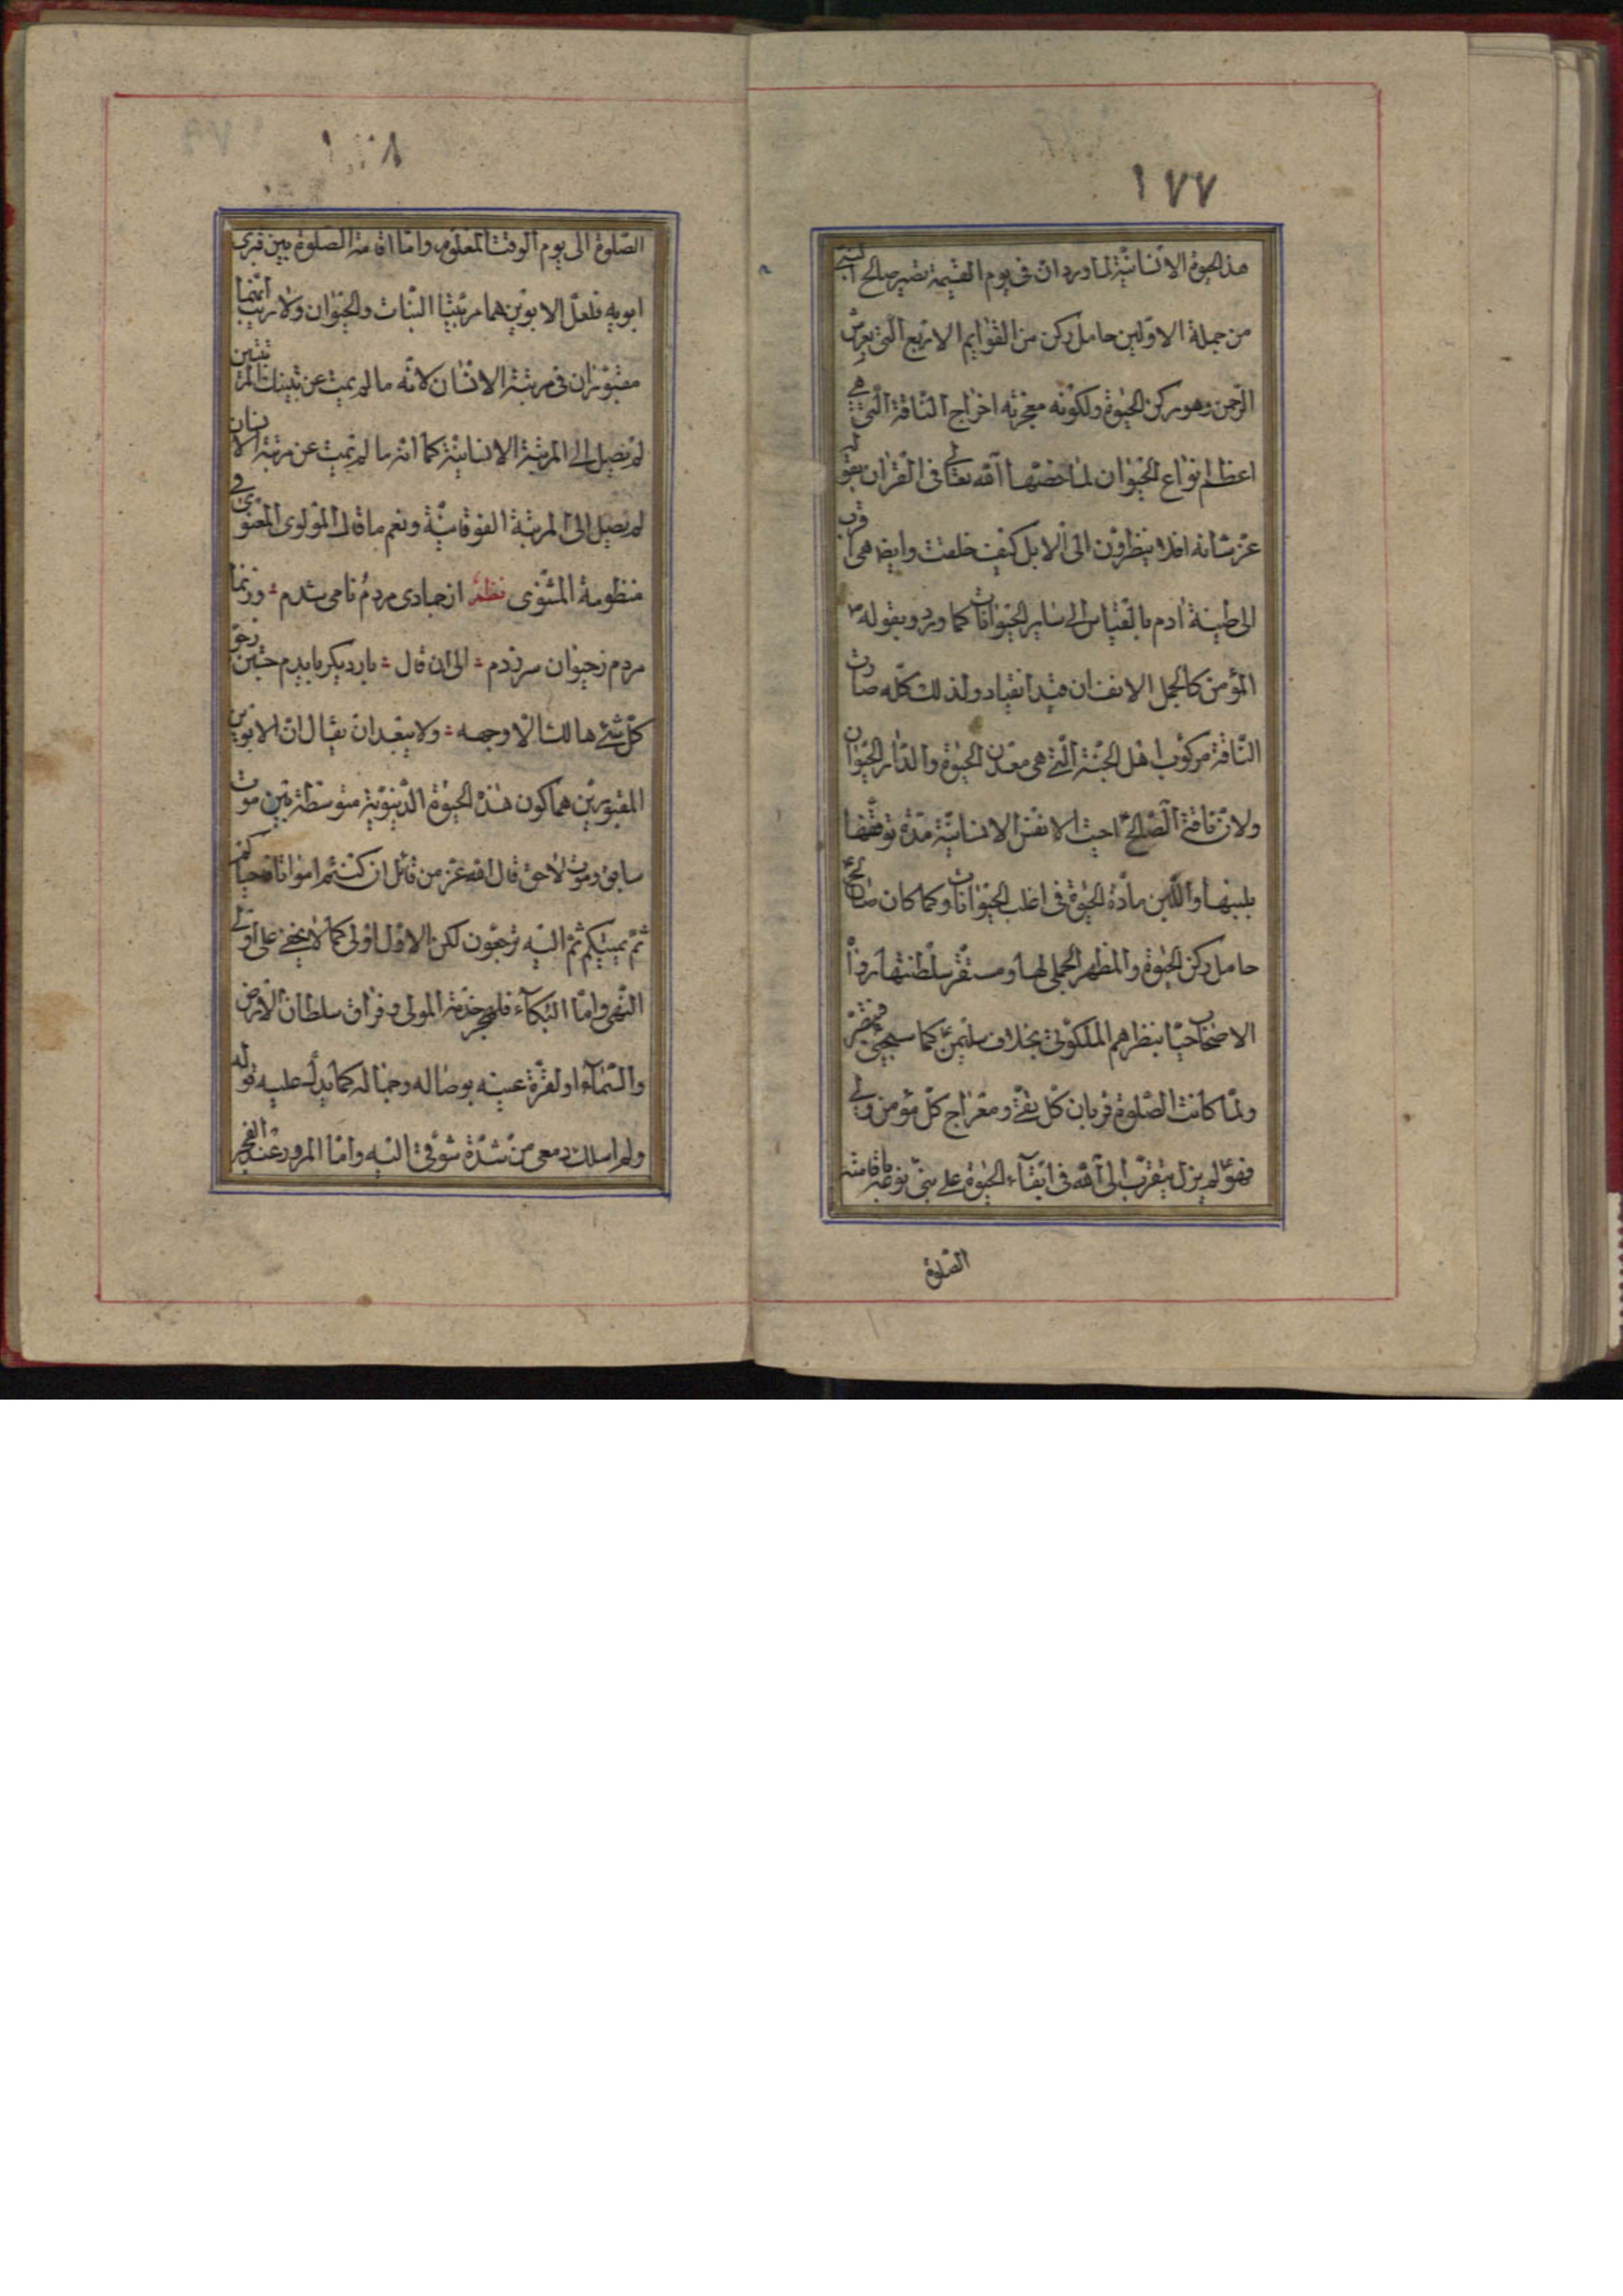 ١٧٧
هذه الحيوة الانسانیّة لما ورد انّ فی یوم القیمة تصیر صالح النبی
من جملة الاوّلین حامل رکن من القوایم الاربع الّتی بعرش
الرّحمن وهو رکن الحیوة ولکونه معجزته اخراج النّاقة الّتی هی
اعظم انواع الحیوان لما خصّها اللّه تعالی فی القران بقوله
عزّ شانه افلا ینظرون الی الابل کیف خلقت وایضا هی اقرب
الی طینة ادم بالقیاس الی سایر الحیوانات کما ورد وبقوله
المؤمن کالجمل الانف ان قید انقیاد ولذلک کلّه صارت
النّاقة مرکوب اهل الجنّة الّتی هی معدن الحیوة والدّار الحیوان
ولانّ ناقة الصّالح احیت الانفس الانسانیّة مدّة توقّفها
بلبنها واللّبن مادّة الحیوة فی اغلب الحیوانات وکما کان صالح
حامل رکن الحیوة والمظهر الجملی لها ومستقرّ سلطنتها
الاضحاب حیّا بنظرهم الملکوتی بخلاف سلیمن کما سیجیئ
ولمّا کانت الصّلوة قربان کلّ تقیّ ومعراج کلّ مؤمن ولی
فهو لم یزل یتقرّب الی اللّه فی ابقاء الحیوة علی بنی نوعه باقامته
الصّلوة
الصّلوة الی یوم الوقت المعلوم وامّا اقامته الصّلوة بین قبری
ابویه فلعلّ الابوین هما مرتبتا النّبات والحیوان ولا ریب انّهما
مقبوران فی مرتبة الانسان لانّه ما لم یمت عن تینک المرتبتین
لم یصل الی المرتبة الانسانیّة کما انّه ما لم یمت عن مرتبة الانسان
لم یصل الی المرتبة الفوقانیّة ونعم ما قال المولوی المعنوی فی
منظومة المثنوی نظم از جمادی مردم نامی شدم ؞ وزنما
مردم زحیوان سرزدم ؞ الی ان قال ؞ بار دیکر بایدم جستن زجو
کلّ شیئ هالک الّا وجهه ؞ ولا یبعد ان یقال انّ الابوین
المقبورین هما کون هذه الحیوة الدّنیویّة متوسّطة بین موت
سابق وموت لاحق قال اللّه عزّ من قائل ان کنتم امواتا فاحیاکم
ثمّ یمیتکم ثمّ الیه ترجعون لکن الاوّل اولی کما لا یخفی علی اولی
النّهی وامّا البکاء فلهجر خدمة المولی وفراق سلطان الارض
والسّماء او لقرّة عینه بوصاله وجماله کما یدلّ علیه قوله
ولم املک دمعی من شدّة شوقی الیه وامّا المرور عند الفجر